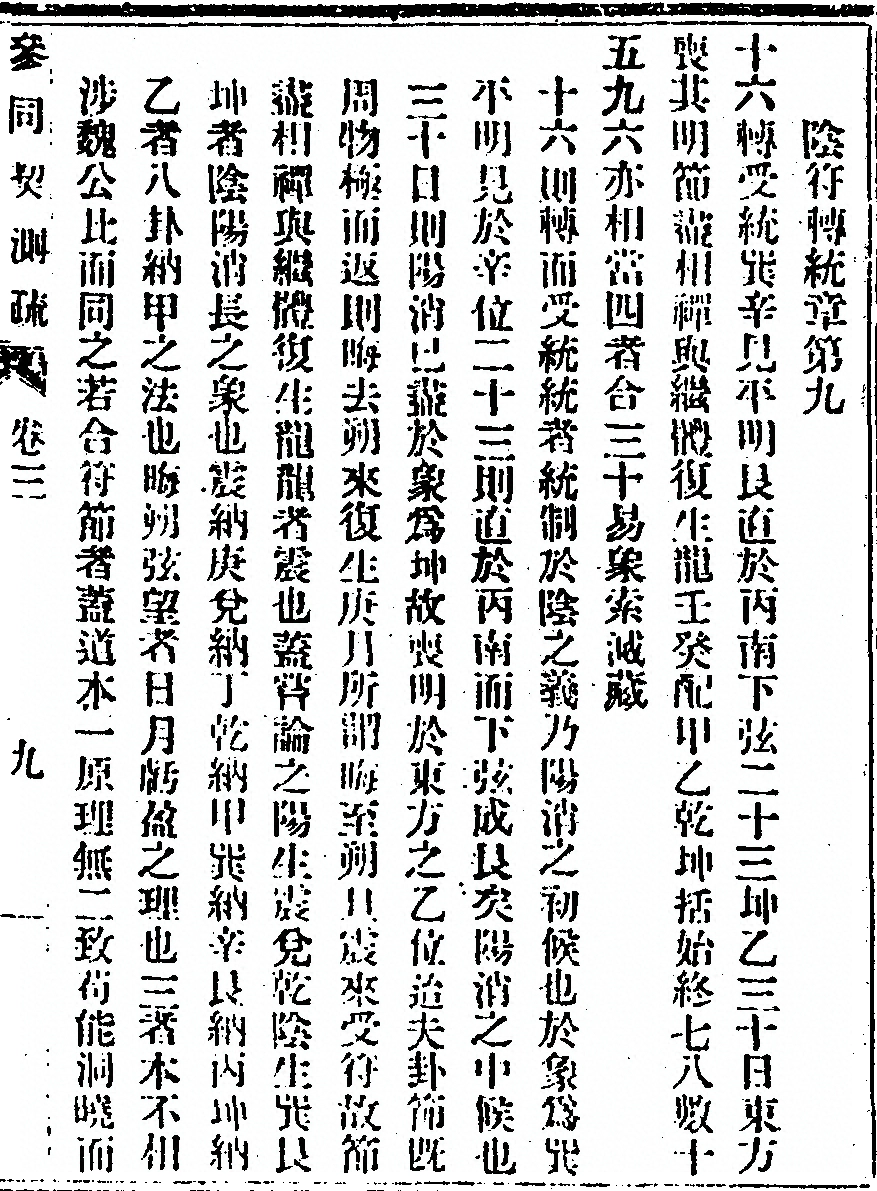 陰符轉統章第九
十六轉受統巽辛見平明艮直於丙南下弦二十三坤乙三十日東方
喪其明節盡相禪與繼體復生龍壬癸配甲乙乾坤括始終七八數十
五九六亦相當四者合三十易象索滅藏
十六則轉而受統統者統制於陰之義乃陽消之初候也於象為巽
平明見於辛位二十三則直於丙南而下弦成艮矣陽消之中候也
三十日則陽消已盡於象為坤故喪明於東方之乙位迨夫卦節既
周物極而返則晦去朔來復生庚月所謂晦至朔旦震來受符故節
盡相禪與繼體復生龍龍者震也蓋嘗論之陽生震兌乾陰生巽艮
坤者陰陽消長之象也震納庚兌納丁乾納甲巽納辛艮納丙坤納
乙者八卦納甲之法也晦朔弦望者日月虧盈之理也三者本不相
涉魏公比而同之若合符節者蓋道本一原理無二致苟能洞曉而
參同契測疏 卷三 九